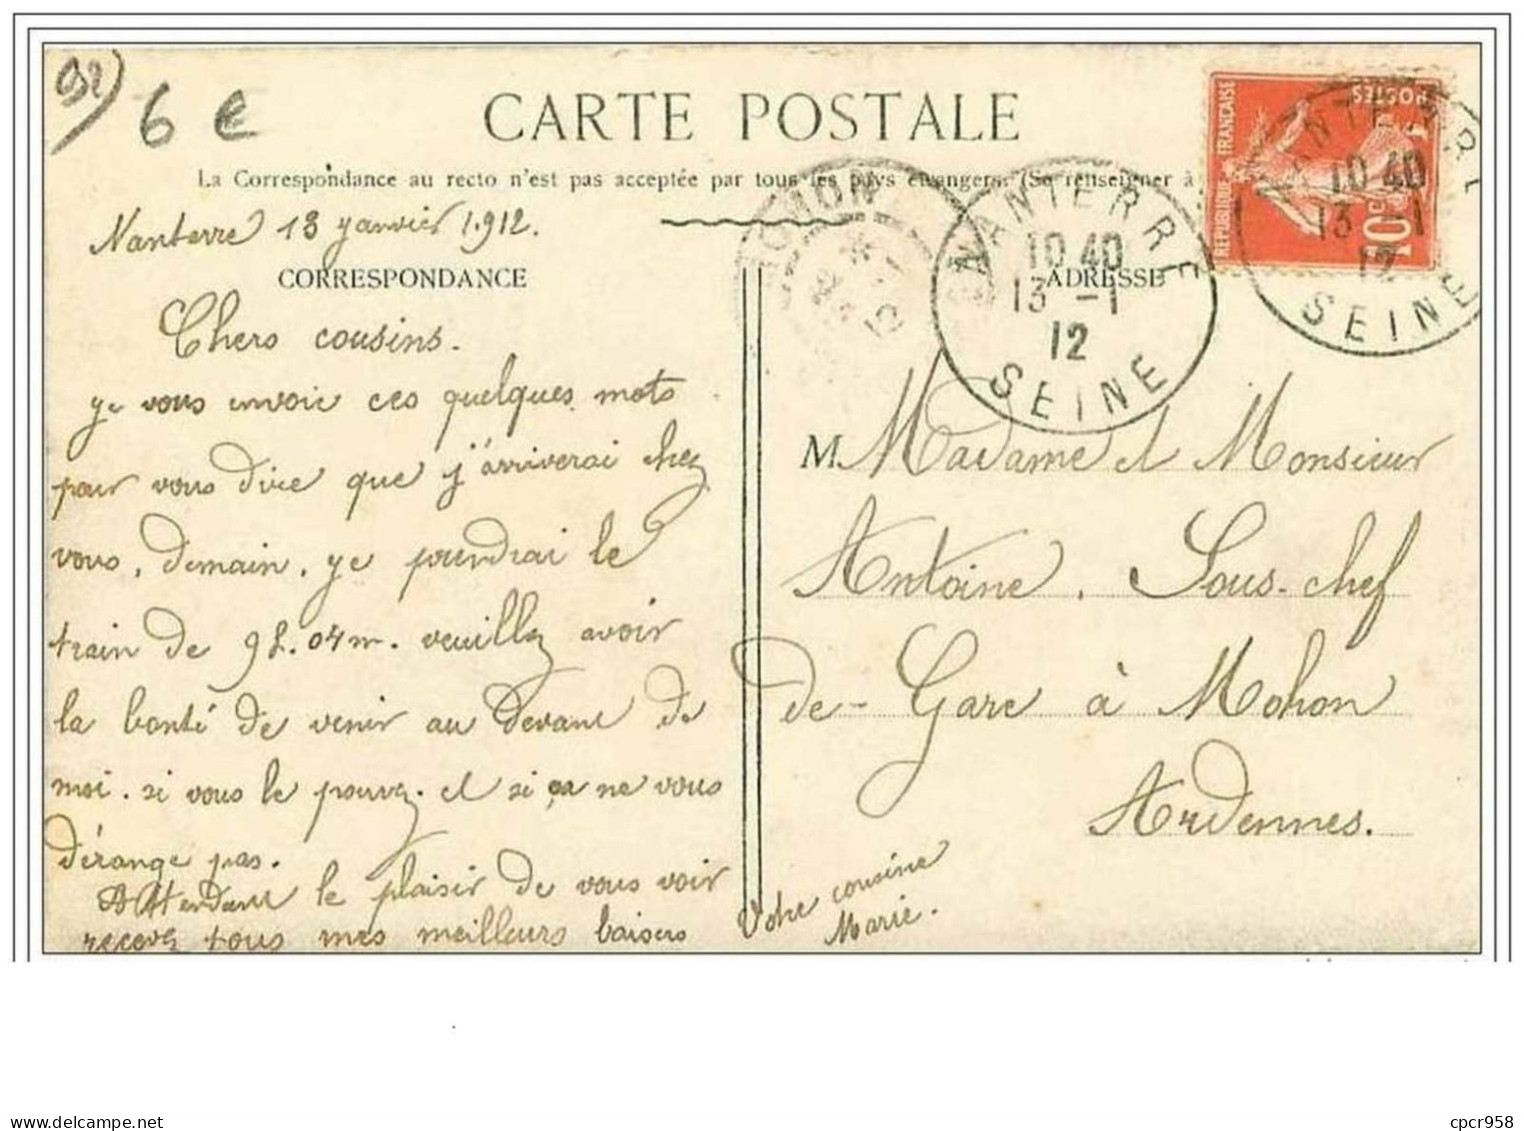 92) 6 €
CARTE POSTALE
La Correspondance au recto n'est pas acceptée par tous les pays étrangers. (Se renseigner à
Nanterre 13 janvier 1912.
CORRESPONDANCE
Chers cousins.
je vous envoie ces quelques mots
pour vous dire que j'arriverai chez
vous, demain, je prendrai le
train de 9h.04m. veuillez avoir
la bonté de venir au devant de
moi. si vous le pouvez. et si ça ne vous
dérange pas.
Attendant le plaisir de vous voir
recevez tous mes meilleurs baisers
Votre cousine
Marie.
ADRESSE
M. Madame et Monsieur
Antoine. Sous-chef
de-Gare à Mohon
Ardennes.
MOHON
12
NANTERRE
10 40
13 -1
12
SEINE
REPUBLIQUE FRANÇAISE
POSTES
10c
NANTERRE
10 40
13 -1
12
SEINE
cpcr958